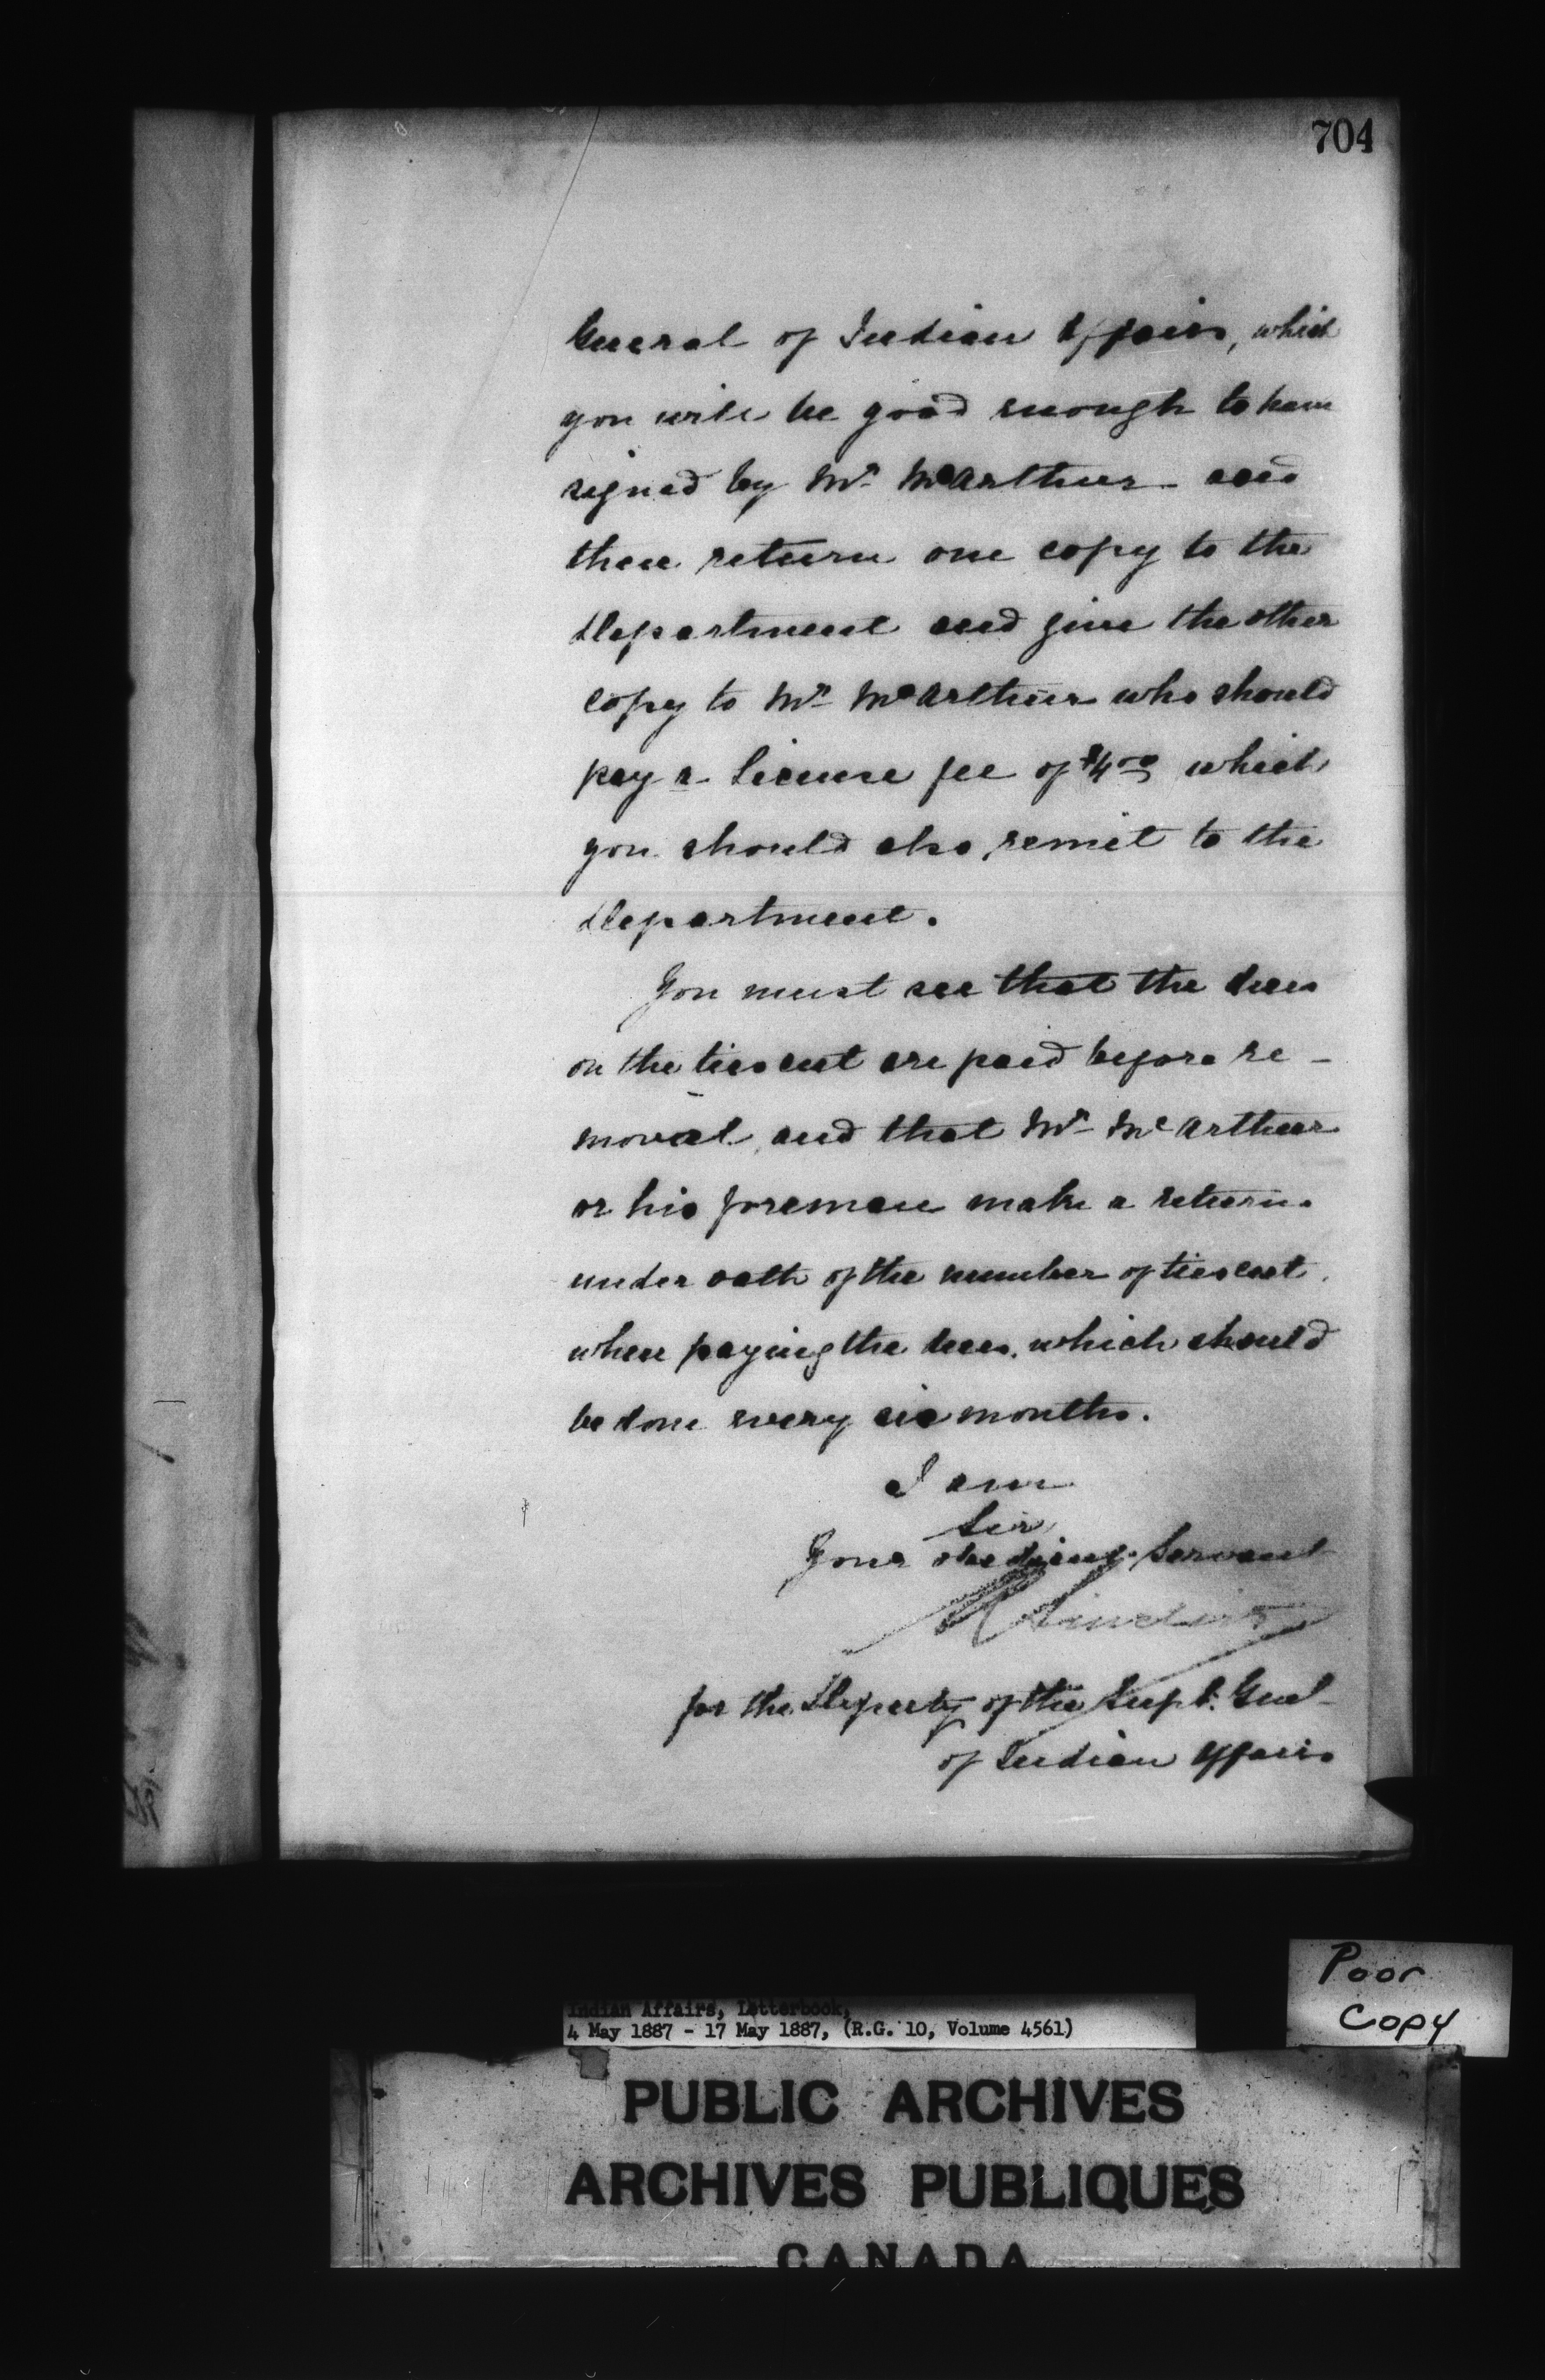 704
General of Indian Affairs, which
you will be good enough to have
signed by Mr. McArthur and
then return one copy to the
Department and give the other
copy to Mr. McArthur who should
pay a license fee of $4.00 which
you should also remit to the
Department.
You must see that the dues
on the ties cut are paid before re-
moval, and that Mr. McArthur
or his foreman make a return
under oath of the number of ties cut
when paying the dues, which should
be done every six months.
I am
Sir
Your obedient Servant
Sinclair
for the Deputy of the Supt. Genl.
of Indian Affairs
Poor
Copy
Indian Affairs, Letterbook,
4 May 1887 - 17 May 1887, (R.G. 10, Volume 4561)
PUBLIC ARCHIVES
ARCHIVES PUBLIQUES
CANADA